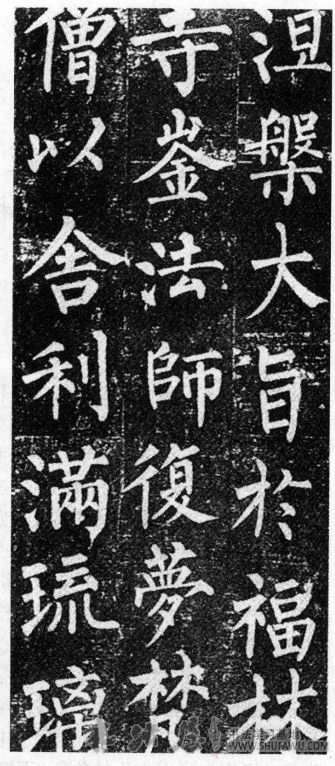 涅槃大旨於福林
寺崟法師復夢梵
僧以舍利滿琉璃
WWW.SHUFAWU.COM